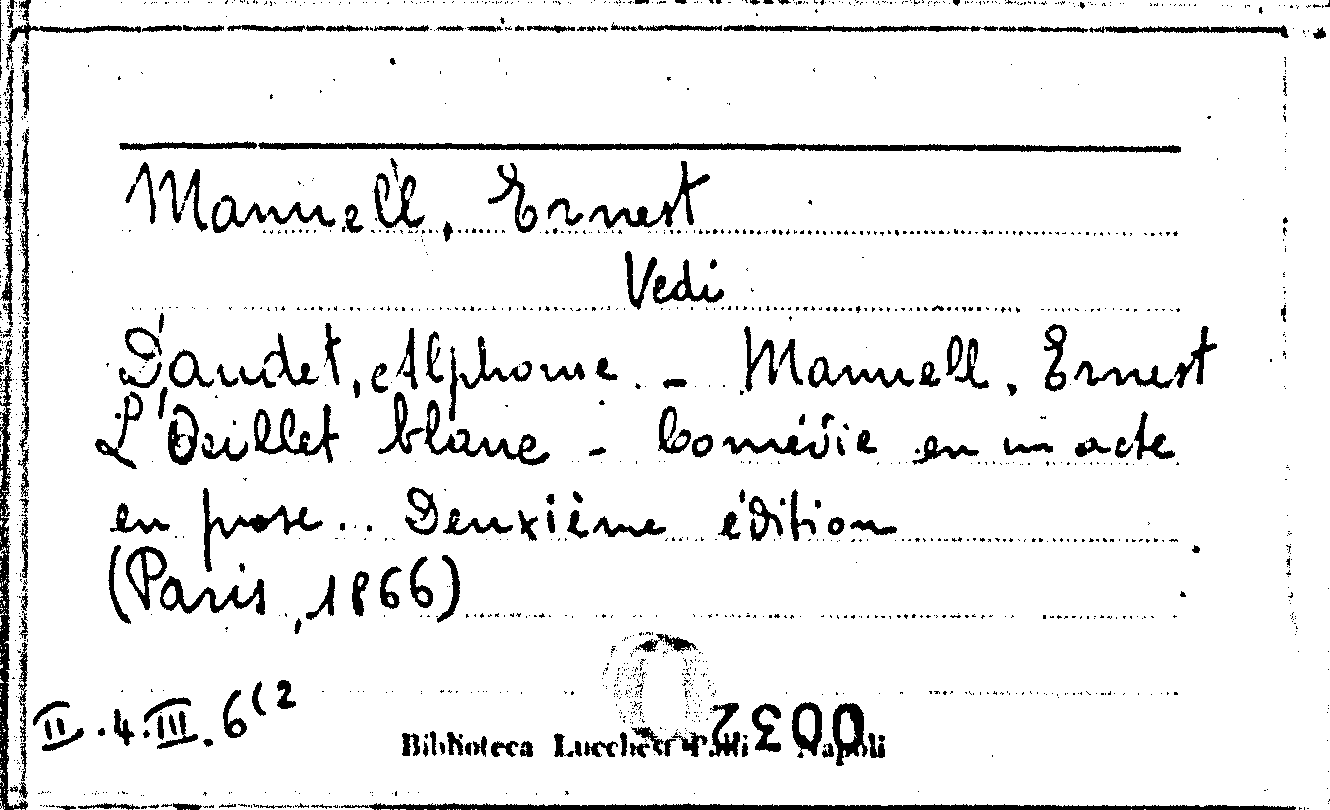 Manuell, Ernest
Vedi
Daudet, Alphonse. - Manuell, Ernest
L'Oeillet blanc - Comédie en un acte
en prose... Deuxième édition
(Paris, 1866)
II.4.III.6(2
0032
Biblioteca Lucchesi Palli Napoli